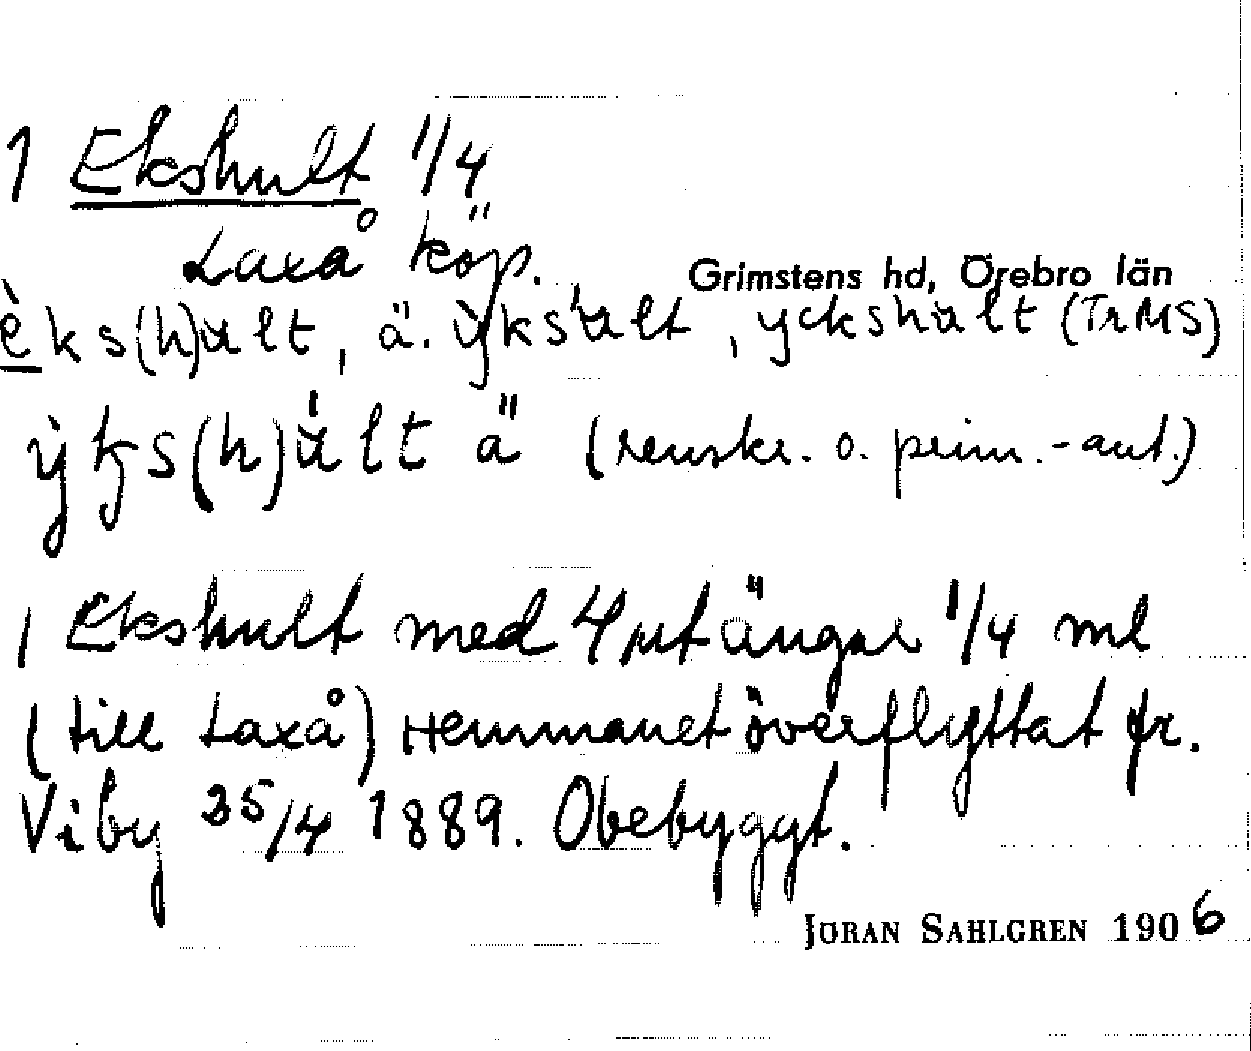 1 Ekshult 1/4
Laxå köp.
Grimstens hd, Örebro län
èks(h)ult, ä. ỳksult, yckshult (TrMS)
ỳks(h)ult ä (renskr. o. prim.-ant.)
1 Ekshult med 4 utängar 1/4 ml
(till Laxå) Hemmanet överflyttat fr.
Viby 25/4 1889. Obebyggt.
JÖRAN SAHLGREN 1906